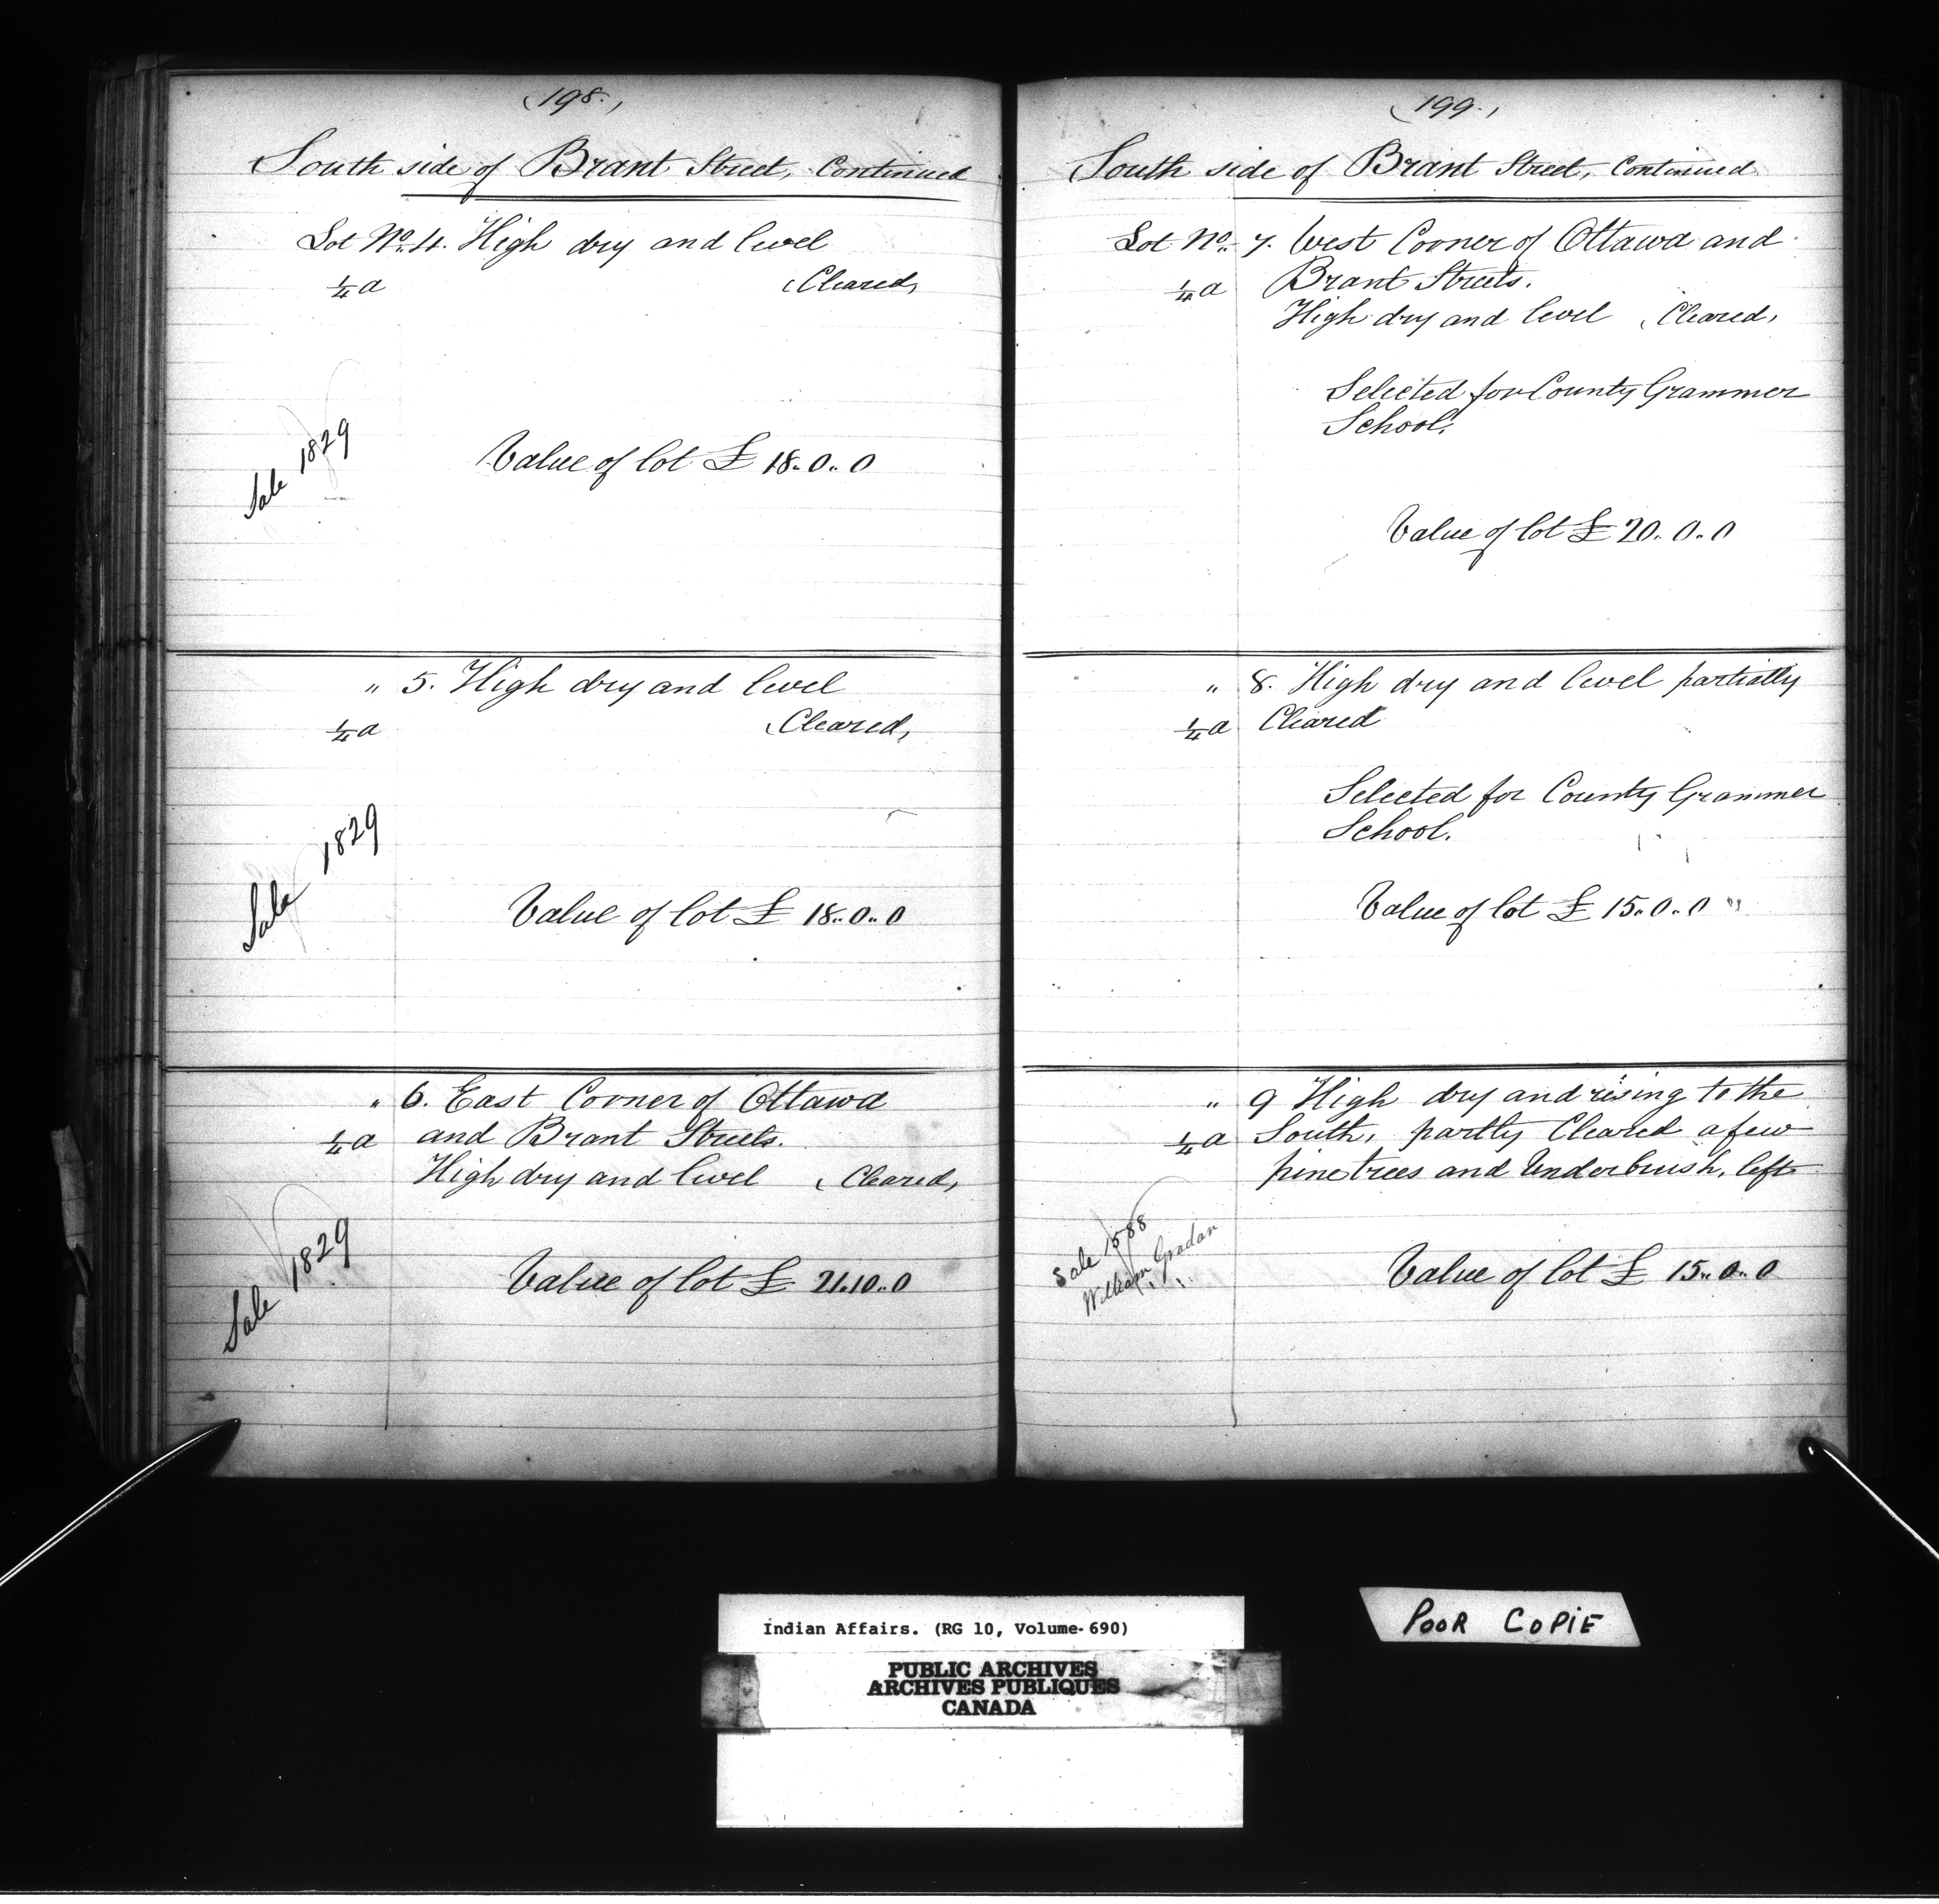 (198.)
South side of Brant Street, Continued
Lot No. 4. High dry and level
1/4 a (Cleared)
Sale 1829
Value of lot £ 18.. 0.. 0
" 5. High dry and level
1/4 a (Cleared)
Sale 1829
Value of lot £ 18.. 0.. 0
" 6. East Corner of Ottawa
1/4 a and Brant Streets.
High dry and level (Cleared)
Sale 1829
Value of lot £ 21.. 10.. 0
(199.)
South side of Brant Street, Continued
Lot No. 7. West Corner of Ottawa and
1/4 a Brant Streets.
High dry and level (Cleared)
Selected for County Grammer
School.
Value of lot £ 20.. 0.. 0
" 8. High dry and level partially
1/4 a Cleared
Selected for County Grammer
School.
Value of lot £ 15.. 0.. 0
" 9 High dry and rising to the
1/4 a South, partly Cleared a few
pine trees and Underbrush, left
Sale 1588
William
Value of lot £ 15.. 0.. 0
Indian Affairs. (RG 10, Volume-690)
PUBLIC ARCHIVES
ARCHIVES PUBLIQUES
CANADA
POOR COPIE